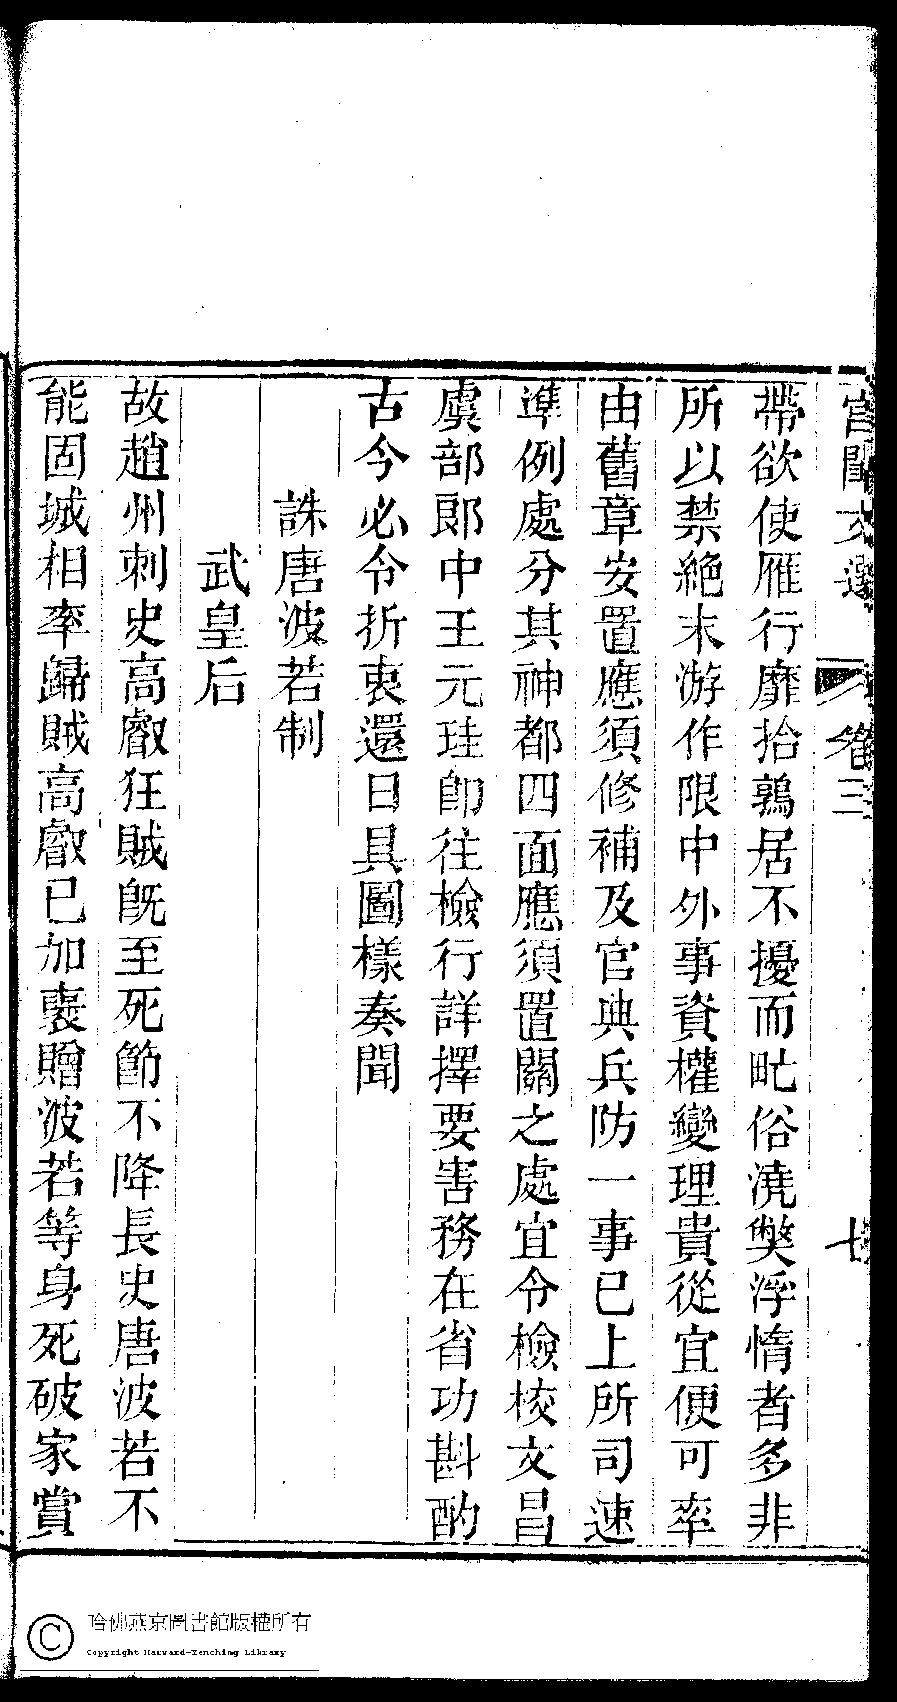 宮閨文選 卷三 七
帶欲使雁行靡拾鶉居不擾而甿俗澆獘浮惰者多非
所以禁絶末游作限中外事資權變理貴從宜便可率
由舊章安置應須修補及官典兵防一事已上所司速
準例處分其神都四面應須置關之處宜令檢校文昌
虞部郞中王元珪卽往檢行詳擇要害務在省功斟酌
古今必令折衷還日具圖樣奏聞
誅唐波若制
武皇后
故趙州刺史高叡狂賊旣至死節不降長史唐波若不
能固城相率歸賊高叡已加襃贈波若等身死破家賞
哈佛燕京圖書館版權所有
Copyright Harvard-Yenching Library